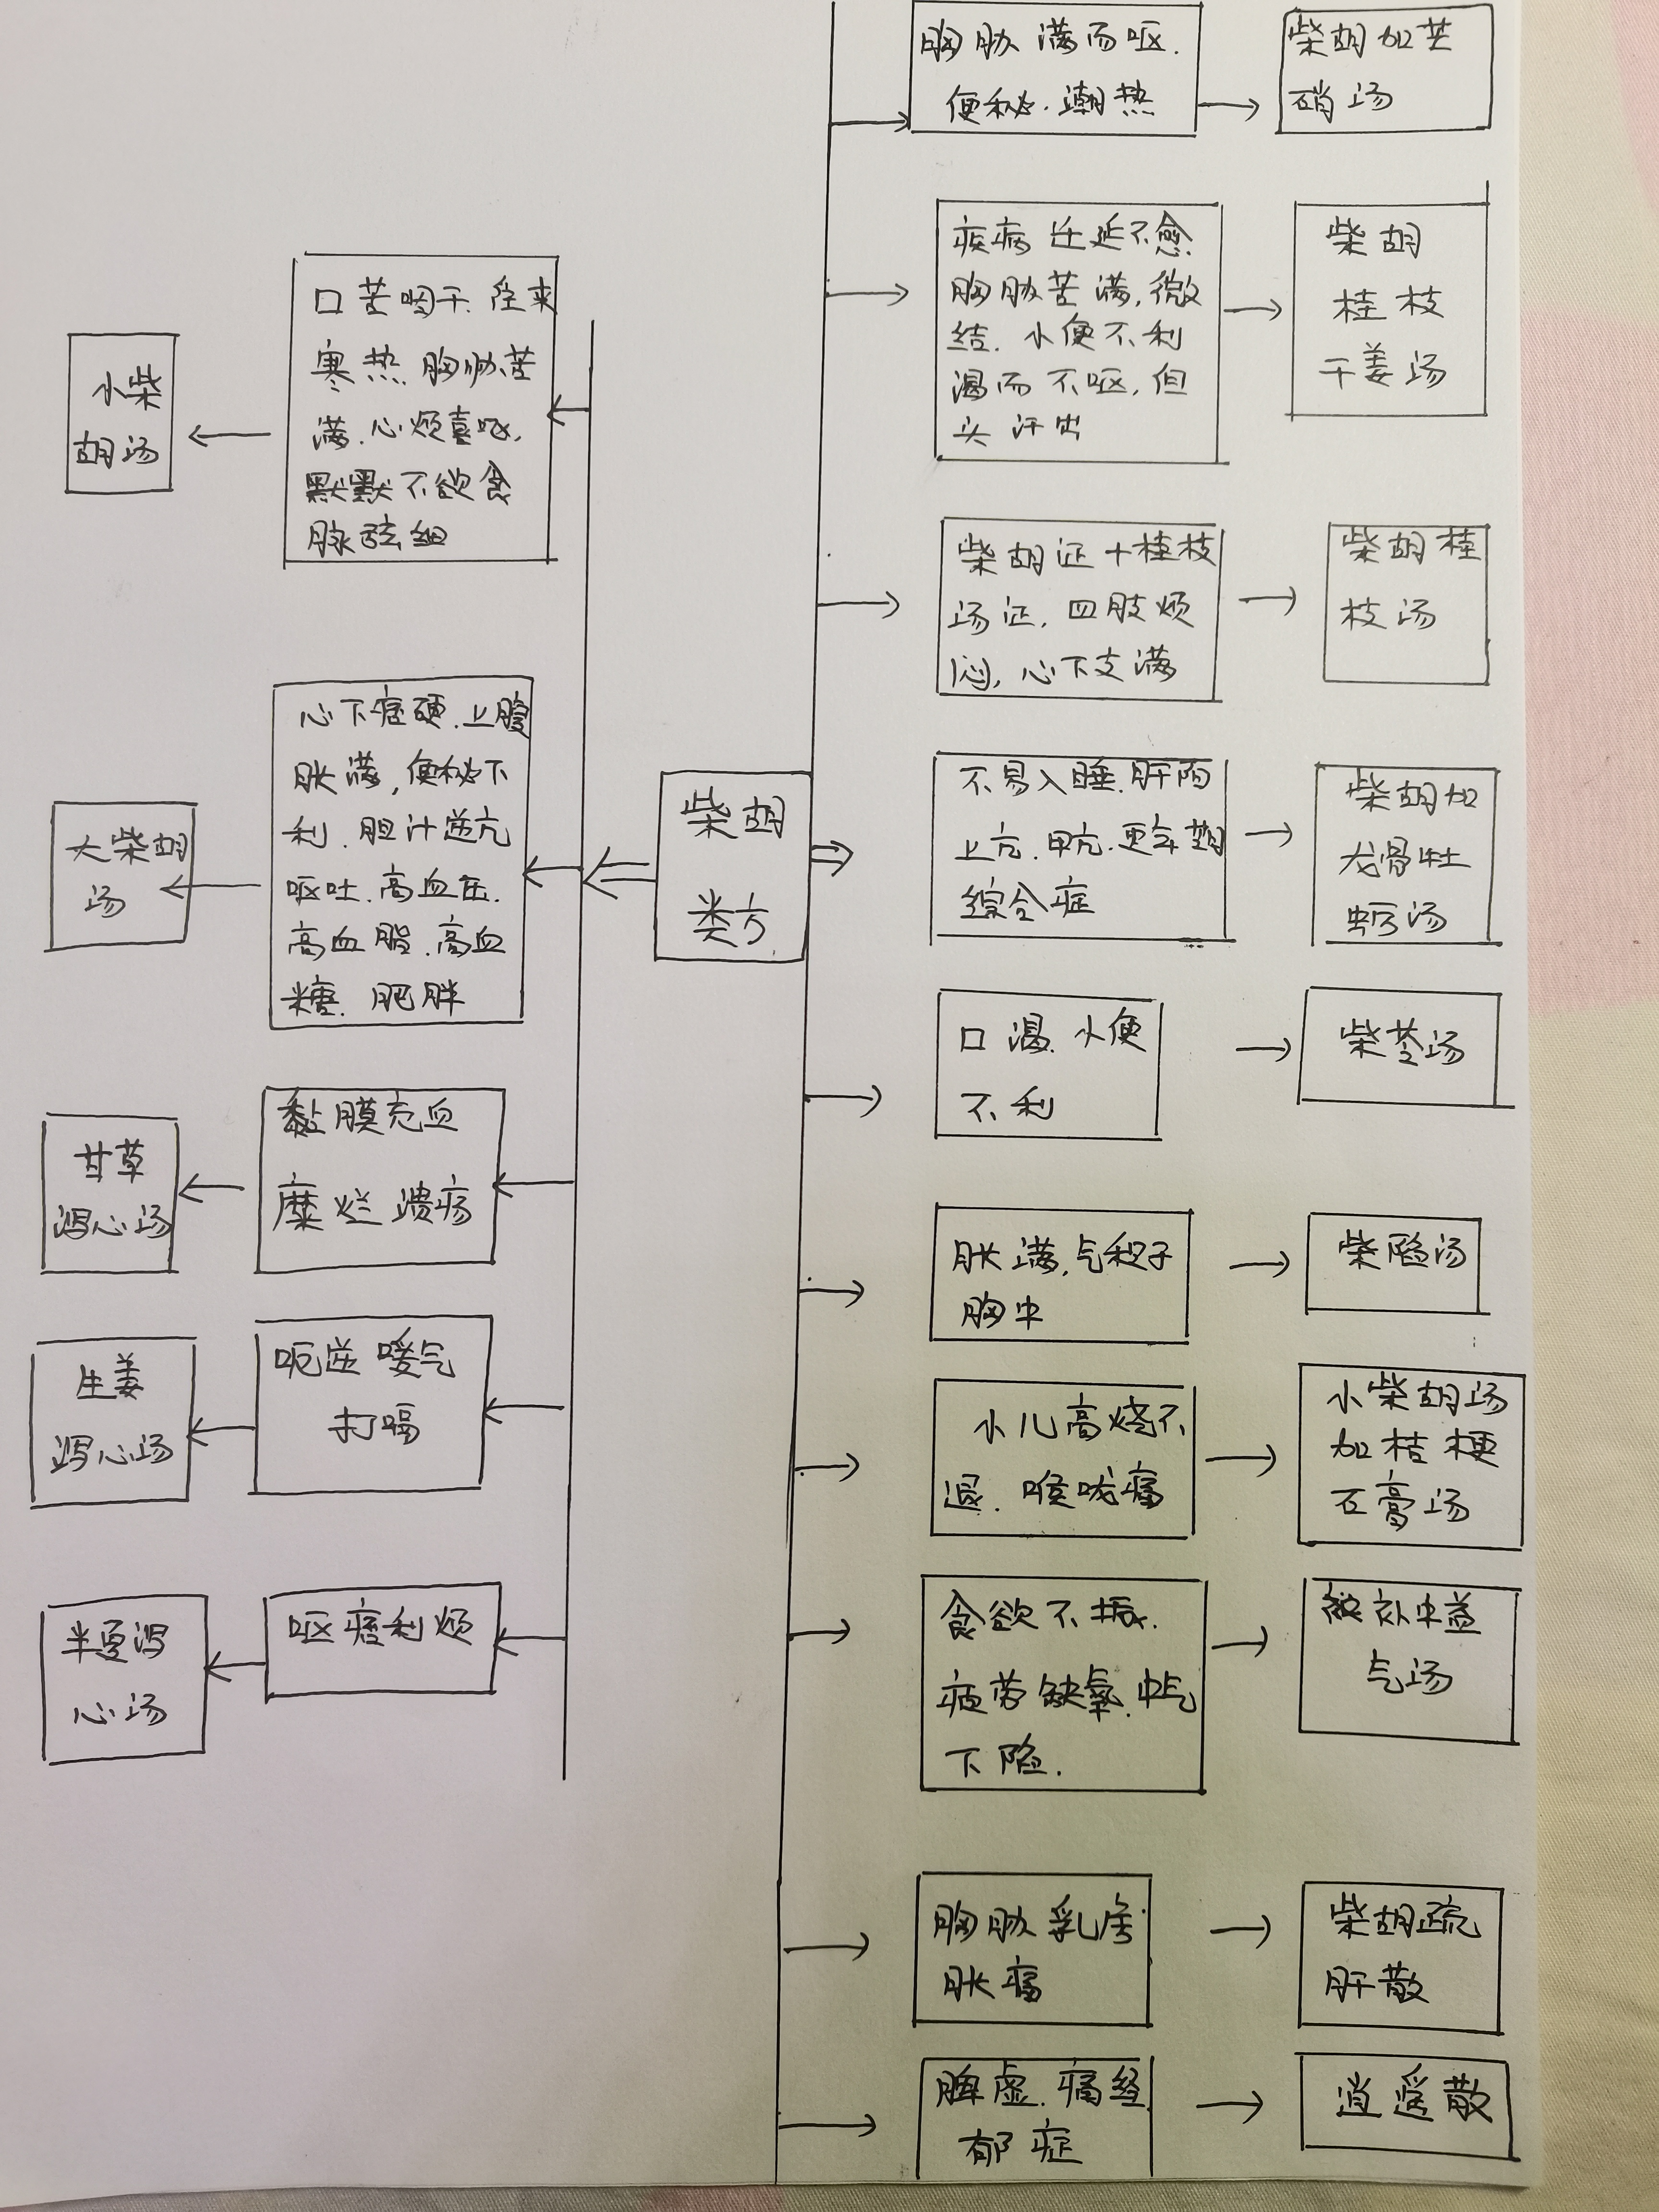 柴胡
类方
口苦咽干.往来
寒热.胸胁苦
满.心烦喜呕,
默默不欲食
脉弦细
小柴
胡汤
心下痞硬.上腹
胀满,便秘下
利.胆汁逆亢
呕吐.高血压.
高血脂.高血
糖.肥胖
大柴胡
汤
黏膜充血
糜烂溃疡
甘草
泻心汤
呃逆嗳气
打嗝
生姜
泻心汤
呕痞利烦
半夏泻
心汤
胸胁满而呕.
便秘.潮热
柴胡加芒
硝汤
疾病迁延不愈
胸胁苦满,微
结.小便不利
渴而不呕,但
头汗出
柴胡
桂枝
干姜汤
柴胡证+桂枝
汤证,四肢烦
闷,心下支满
柴胡桂
枝汤
不易入睡.肝阳
上亢.甲亢.更年期
综合症
柴胡加
龙骨牡
蛎汤
口渴.小便
不利
柴苓汤
胀满,气积于
胸中
柴陷汤
小儿高烧不
退.喉咙痛
小柴胡汤
加桔梗
石膏汤
食欲不振.
疲劳缺氧.中气
下陷.
补中益
气汤
胸胁乳房
胀痛
柴胡疏
肝散
脾虚.痛经
郁症
逍遥散